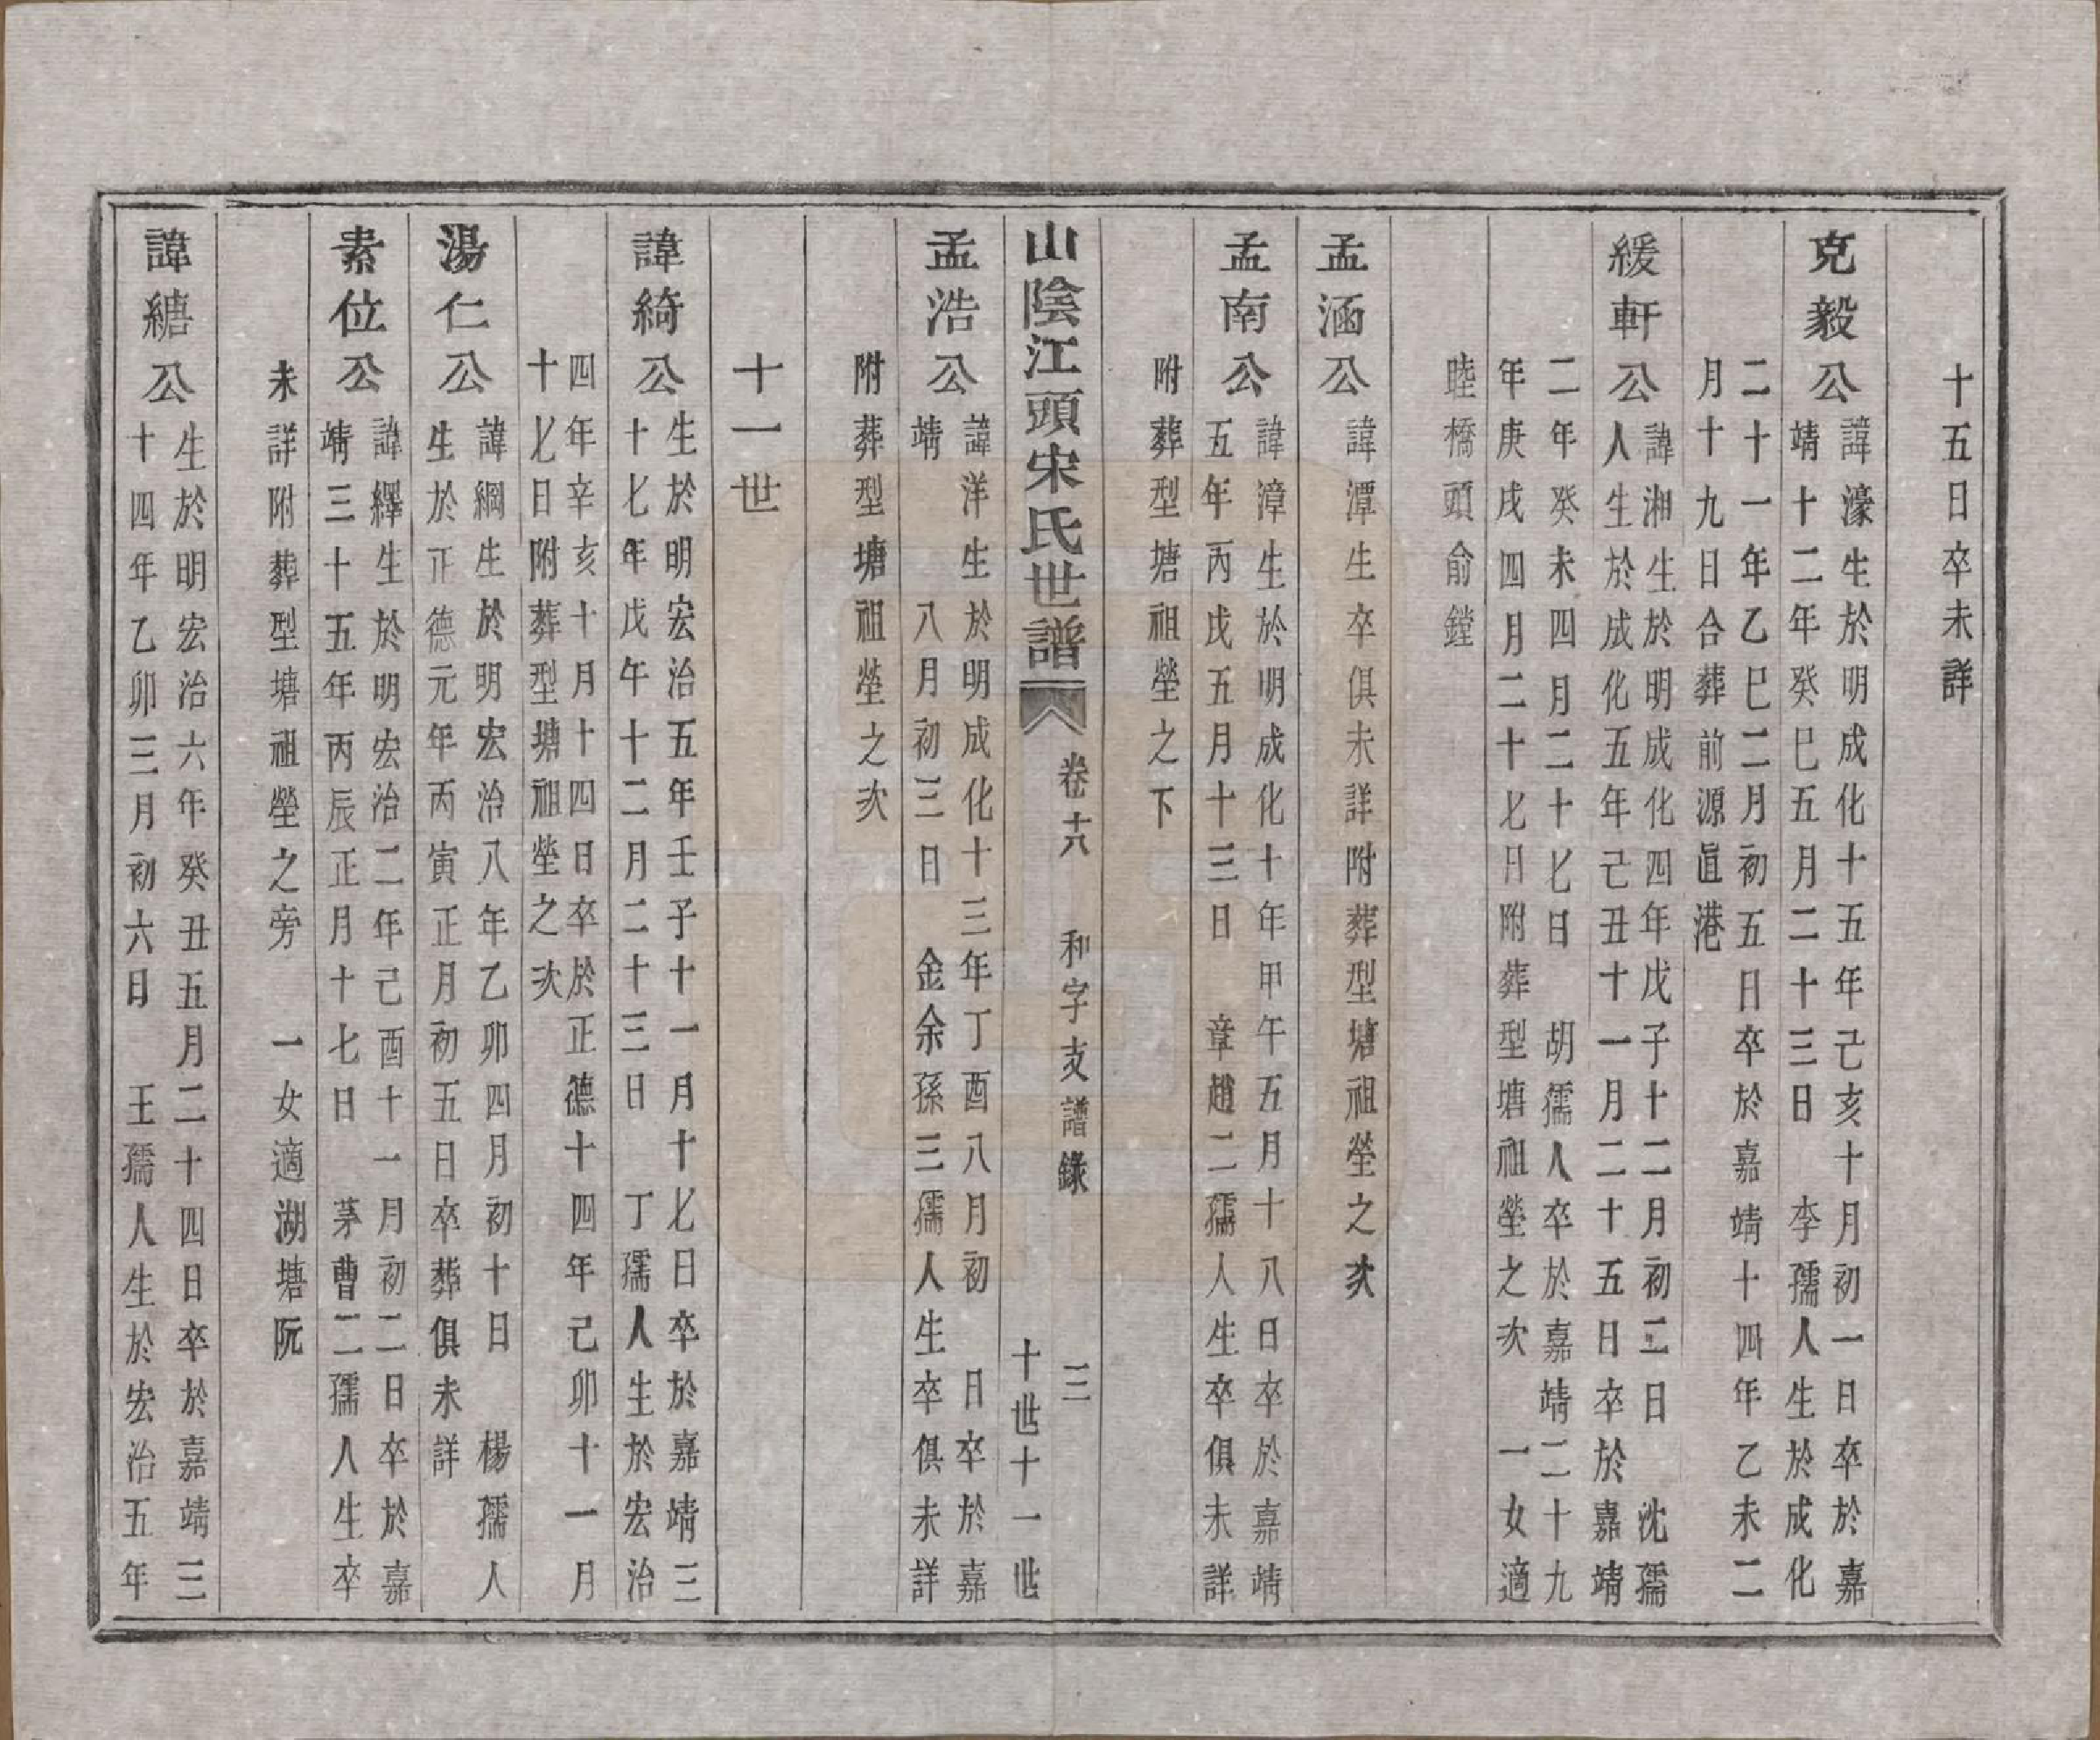 十五日卒未詳
克毅公
諱濠生於明成化十五年己亥十月初一日卒於嘉
靖十二年癸巳五月二十三日 李孺人生於成化
二十一年乙巳二月初五日卒於嘉靖十四年乙未二
月十九日合葬前源眞港
緩軒公
諱湘生於明成化四年戊子十二月初二日 沈孺
人生於成化五年己丑十一月二十五日卒於嘉靖
二年癸未四月二十七日 胡孺人卒於嘉靖二十九
年庚戌四月二十七日附葬型塘祖塋之次 一女適
睦橋頭俞鏜
孟涵公
諱潭生卒俱未詳附葬型塘祖塋之次
孟南公
諱漳生於明成化十年甲午五月十八日卒於嘉靖
五年丙戌五月十三日 章趙二孺人生卒俱未詳
附葬型塘祖塋之下
山陰江頭宋氏世譜 卷十六 和字支譜錄 三 十世十一世
孟浩公
諱洋生於明成化十三年丁酉八月初 日卒於嘉
靖 八月初三日 金余孫三孺人生卒俱未詳
附葬型塘祖塋之次
十一世
諱綺公
生於明宏治五年壬子十一月十七日卒於嘉靖三
十七年戊午十二月二十三日 丁孺人生於宏治
四年辛亥十月十四日卒於正德十四年己卯十一月
十七日附葬型塘祖塋之次
湯仁公
諱綱生於明宏治八年乙卯四月初十日 楊孺人
生於正德元年丙寅正月初五日卒葬俱未詳
素位公
諱繹生於明宏治二年己酉十一月初二日卒於嘉
靖三十五年丙辰正月十七日 茅曹二孺人生卒
未詳附葬型塘祖塋之旁 一女適湖塘阮
諱䊗公
生於明宏治六年癸丑五月二十四日卒於嘉靖三
十四年乙卯三月初六日 王孺人生於宏治五年